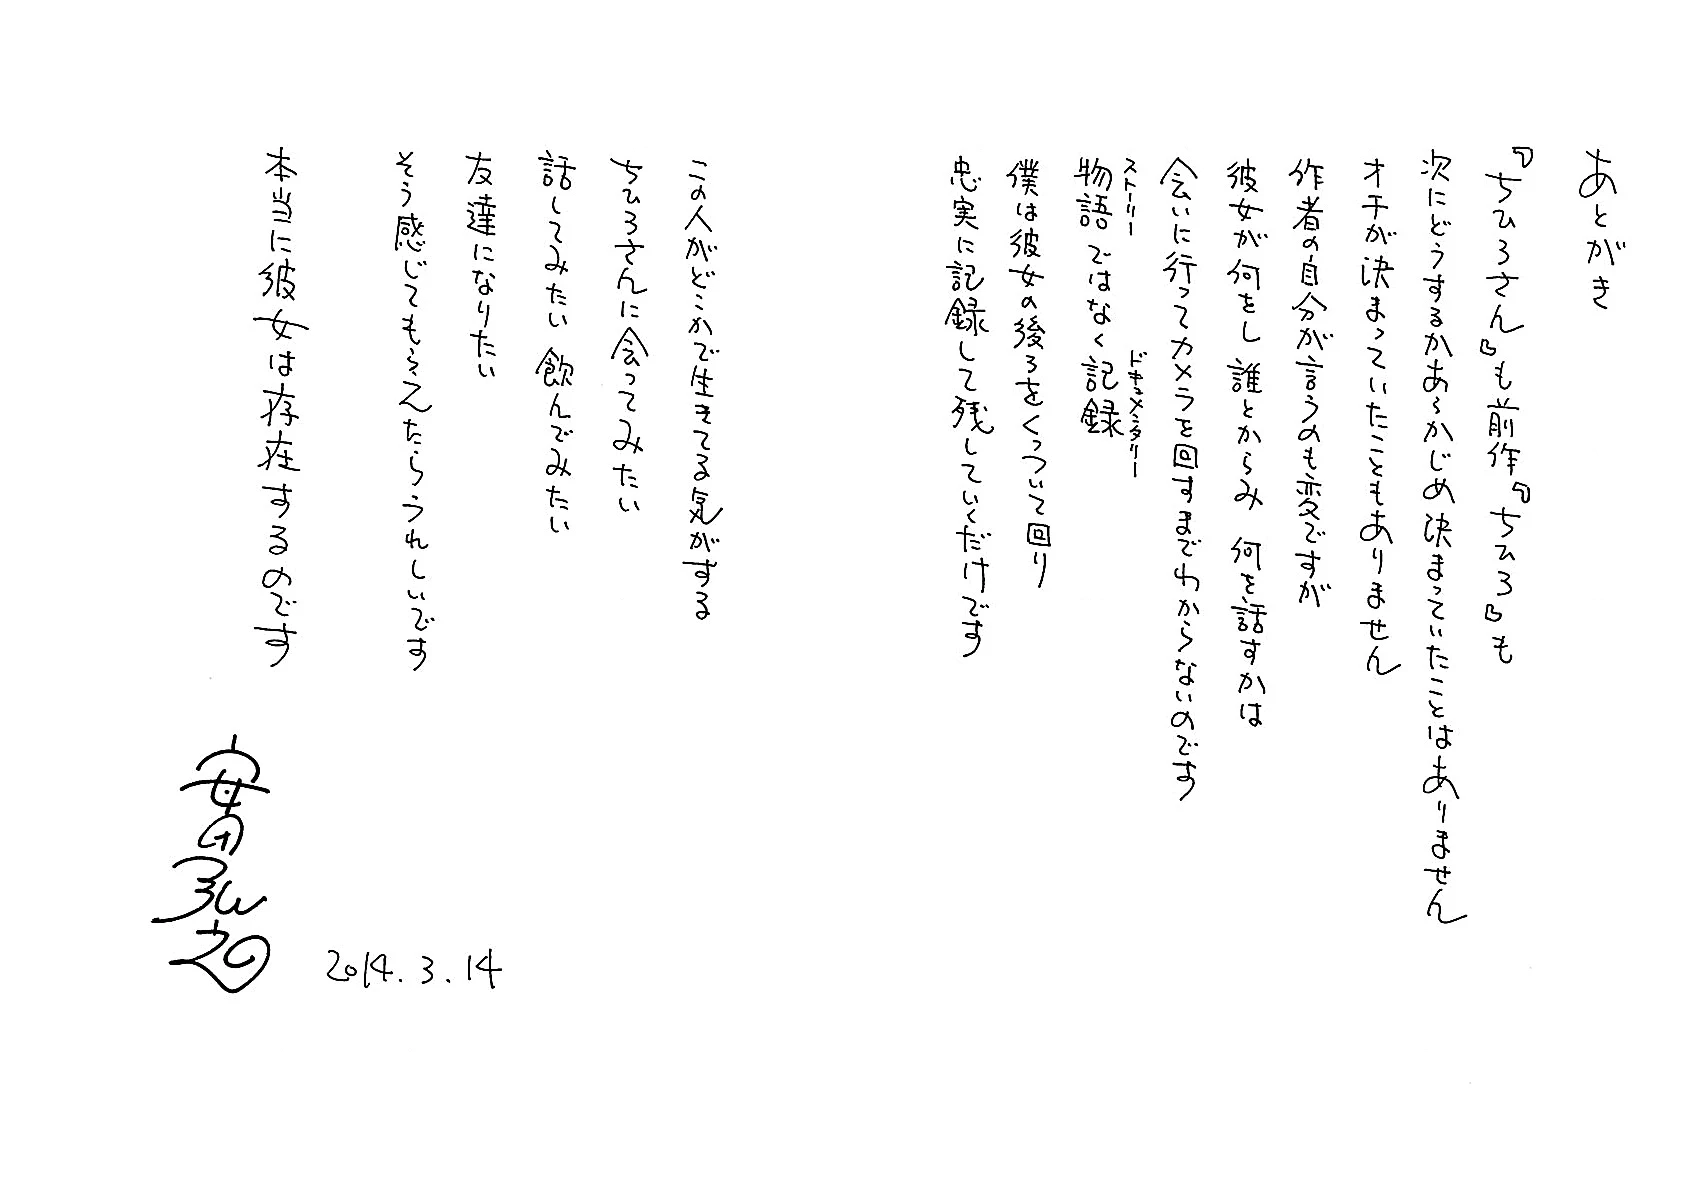 あとがき
『ちひろさん』も前作『ちひろ』も
次にどうするかあらかじめ決まっていたことはありません
オチが決まっていたこともありません
作者の自分が言うのも変ですが
彼女が何をし 誰とからみ 何を話すかは
会いに行ってカメラを回すまでわからないのです
ストーリー ドキュメンタリー
物語ではなく記録
僕は彼女の後ろをくっついて回り
忠実に記録して残していくだけです
この人がどこかで生きてる気がする
ちひろさんに会ってみたい
話してみたい 飲んでみたい
友達になりたい
そう感じてもらえたらうれしいです
本当に彼女は存在するのです
2014.3.14
安田弘之